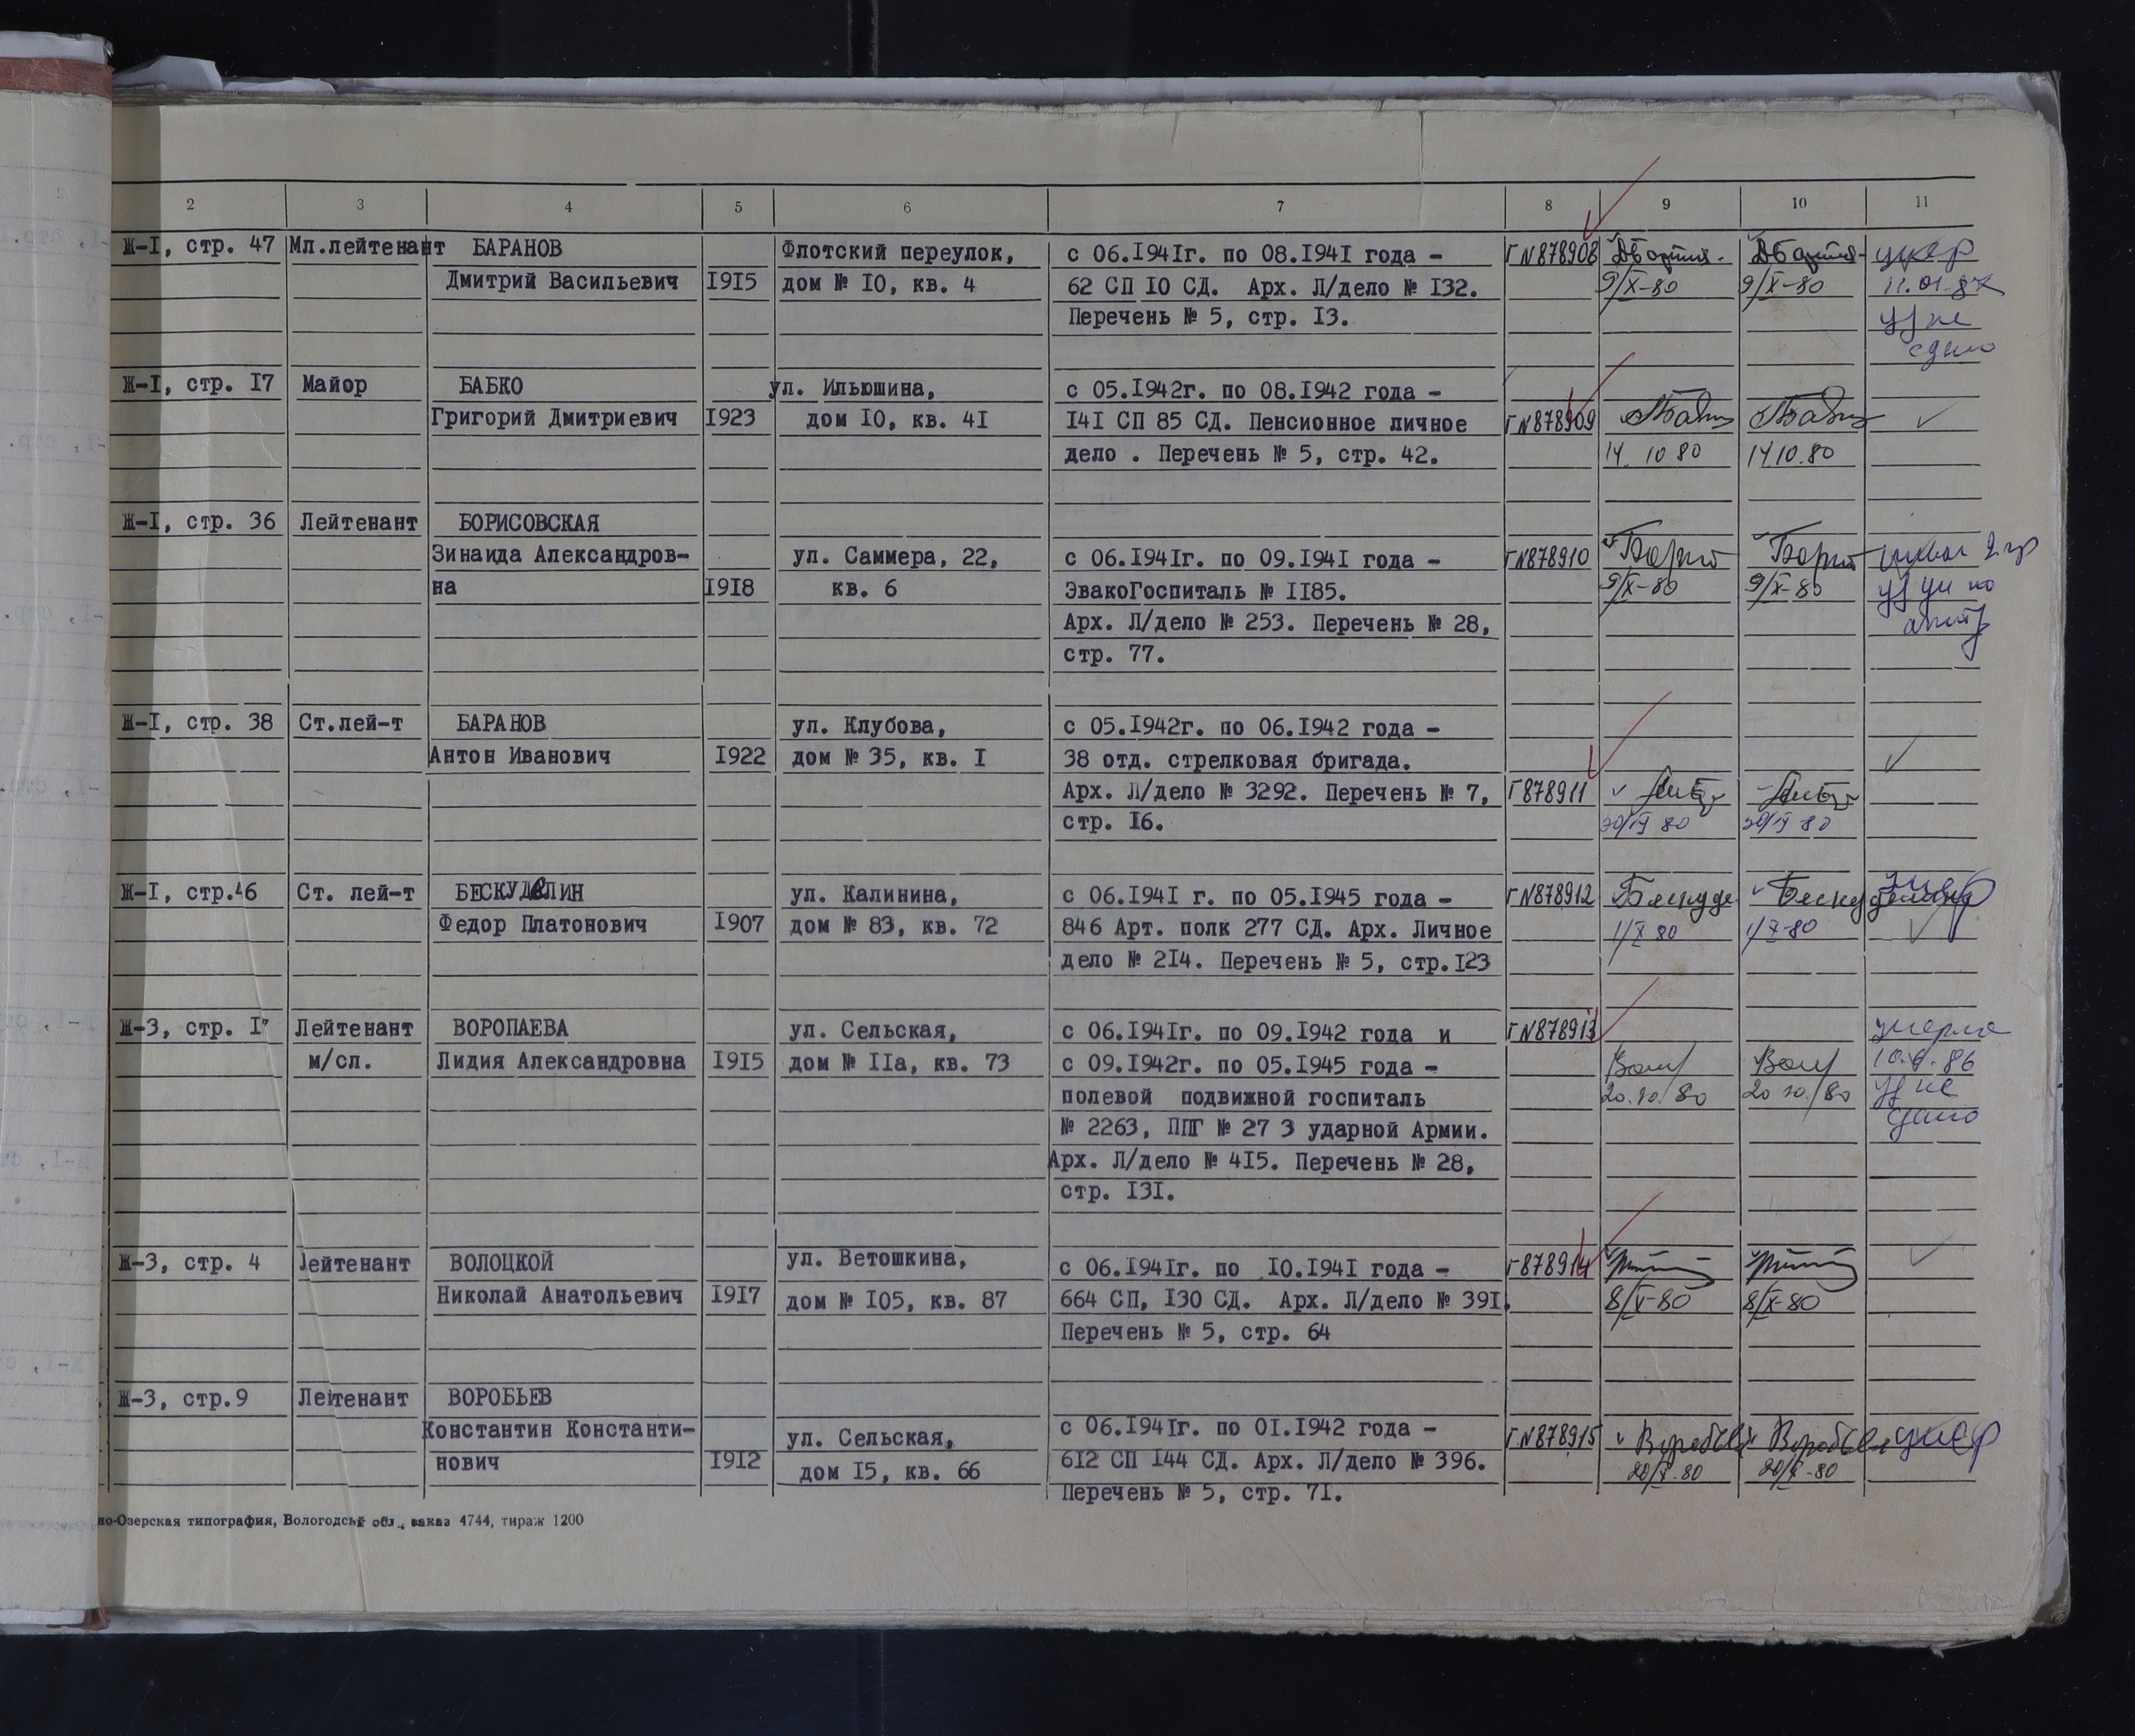 2 3 4 5 6 7 8 9 10 11
Ж-I, стр. 47 Мл.лейтенант БАРАНОВ Флотский переулок, с 06.I94Iг. по 08.I94I года - Г N 878908 умер
Дмитрий Васильевич I9I5 дом № IO, кв. 4 62 СП IO СД. Арх. Л/дело № I32. 9/X-80 9/X-80
Перечень № 5, стр. I3. уд не
сдано
Ж-I, стр. I7 Майор БАБКО ул. Ильюшина, с 05.I942г. по 08.I942 года -
Григорий Дмитриевич I923 дом IO, кв. 4I I4I СП 85 СД. Пенсионное личное Г N 878909
дело . Перечень № 5, стр. 42. 14.10 80 14.10.80
Ж-I, стр. 36 Лейтенант БОРИСОВСКАЯ
Зинаида Александров- ул. Саммера, 22, с 06.I94Iг. по 09.I94I года - Г N 878910
на I9I8 кв. 6 ЭвакоГоспиталь № II85. 9/X-80 9/X-80
Арх. Л/дело № 253. Перечень № 28,
стр. 77.
Ж-I, стр. 38 Ст.лей-т БАРАНОВ ул. Клубова, с 05.I942г. по 06.I942 года -
Антон Иванович I922 дом № 35, кв. I 38 отд. стрелковая бригада.
Арх. Л/дело № 3292. Перечень № 7, Г 878911
стр. I6.
Ж-I, стр.46 Ст. лей-т БЕСКУДЕЛИН ул. Калинина, с 06.I94I г. по 05.I945 года - Г N 878912 умер
Федор Платонович I907 дом № 83, кв. 72 846 Арт. полк 277 СД. Арх. Личное 1/X 80 1/X-80
дело № 2I4. Перечень № 5, стр.I23
Ж-3, стр. I7 Лейтенант ВОРОПАЕВА ул. Сельская, с 06.I94Iг. по 09.I942 года и Г N 878913 умерла
м/сл. Лидия Александровна I9I5 дом № IIа, кв. 73 с 09.I942г. по 05.I945 года -
полевой подвижной госпиталь 20.10/80 20 10/80 уд не
№ 2263, ППГ № 27 3 ударной Армии. сдано
Арх. Л/дело № 4I5. Перечень № 28,
стр. I3I.
Ж-3, стр. 4 лейтенант ВОЛОЦКОЙ ул. Ветошкина, с 06.I94Iг. по IO.I94I года - Г 878914
Николай Анатольевич I9I7 дом № I05, кв. 87 664 СП, I30 СД. Арх. Л/дело № 39I. 8/X-80 8/X-80
Перечень № 5, стр. 64
Ж-3, стр.9 Лейтенант ВОРОБЬЕВ
Константин Константи- ул. Сельская, с 06.I94Iг. по OI.I942 года - Г N 878915 умер
нович I9I2 дом I5, кв. 66 6I2 СП I44 СД. Арх. Л/дело № 396. 20/X-80 20/X-80
Перечень № 5, стр. 7I.
но-Озерская типография, Вологодской обл., заказ 4744, тираж 1200